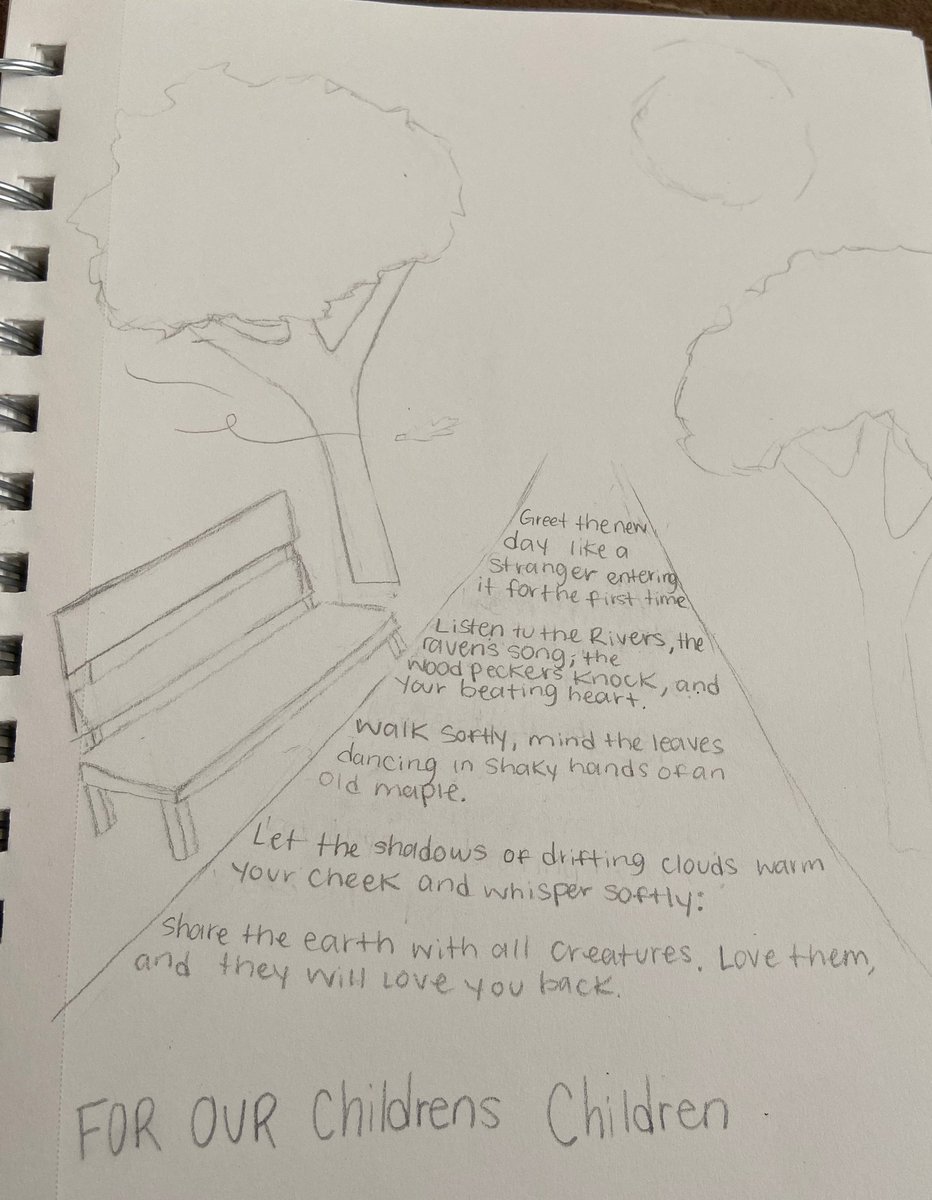 Greet the new
day like a
stranger entering
it for the first time
Listen to the Rivers, the
ravens song, the
woodpeckers knock, and
your beating heart.
Walk softly, mind the leaves
dancing in shaky hands of an
old maple.
Let the shadows of drifting clouds warm
your cheek and whisper softly:
Share the earth with all creatures. Love them,
and they will love you back.
FOR OUR Childrens Children